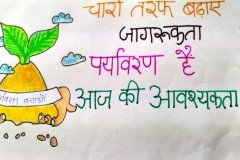 चारों तरफ बढ़ाए
जागरूकता
पर्यावरण है
आज की आवश्यकता
पर्यावरण बचाओ